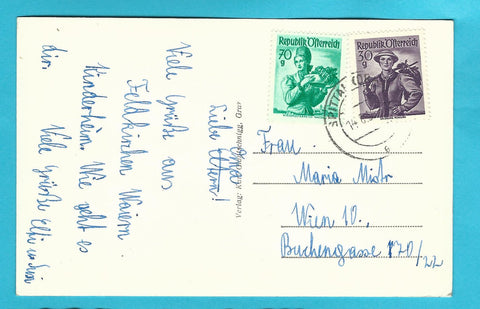 Liebe Oma!
Viele Grüße aus
Feldkirchen Waiern
Kinderheim. Wie geht es
dir.
Viele Grüße Elfi
Verlag:
Graz
70
g
Republik Österreich
30
g
Republik Österreich
Frau
Maria
Wien 10.,
Buchengasse 170/22